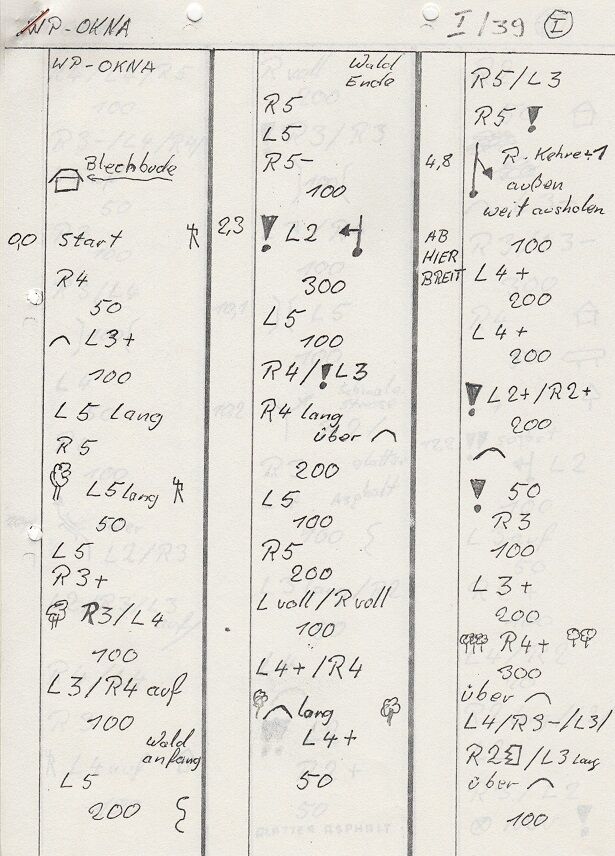 WP-OKNA
I/39 I
WP-OKNA
Blechbude
0,0 Start
R4
50
L3+
100
L5 lang
R5
L5 lang
50
L5
R3+
R3/L4
100
L3/R4 auf
100
Wald
anfang
L5
200
Wald
Ende
R5
L5
R5-
100
2,3 ! L2
300
L5
100
R4/!L3
R4 lang
über
200
L5
100
R5
200
L voll/R voll
100
L4+/R4
lang
L4+
50
R5/L3
R5 !
4,8 R-Kehre+1
außen
weit ausholen
AB
HIER
BREIT
100
L4+
200
L4+
200
! L2+/R2+
200
! 50
R3
100
L3+
200
R4+
300
über
L4/R3-/L3/
R2 /L3 lang
über
100